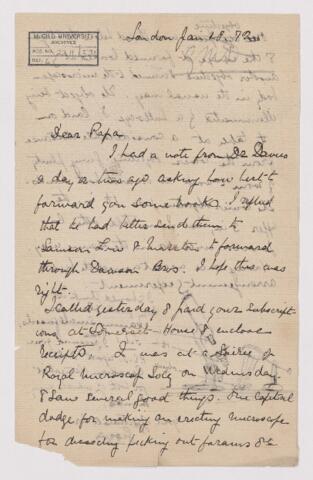 McGILL UNIVERSITY
ARCHIVES
ACC. NO.
REF.
London Jan
Dear Papa
I had a note from Dr Davies
a day or two ago asking how best to
forward you some books. I replied
that he had better send them to
Samson Low & Marston to forward
through Dawson Bros. I hope this was
right.
I called yesterday & paid your subscript-
ions at Somerset House & enclose
receipts. I was at a Soiree of
Royal Microscop Socy on Wednesday
& saw several good things. One capital
dodge for making an erecting microscope
for dissecting picking out forams &c